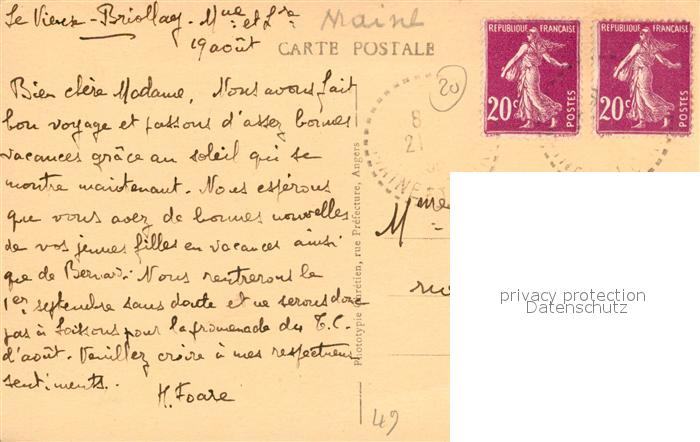 Le Vieux-Briollay. Mne et Lre
19 août
Maine
CARTE POSTALE
REPUBLIQUE FRANÇAISE
20c
POSTES
REPUBLIQUE FRANÇAISE
20c
POSTES
20
8
21
MAINE ET
Bien chère Madame, Nous avons fait
bon voyage et passons d'assez bonnes
vacances grâce au soleil qui se
montre maintenant. Nous espérons
que vous avez de bonnes nouvelles
de vos jeunes filles en vacances ainsi
que de Bernard. Nous rentrerons le
1er septembre sans doute et ne serons donc
pas à Soissons pour la promenade du T.C.
d'août. Veuillez croire à mes respectueux
sentiments..
H. Foare
Phototypie Chrétien, rue Préfecture, Angers
Mme
ru
49
privacy protection
Datenschutz